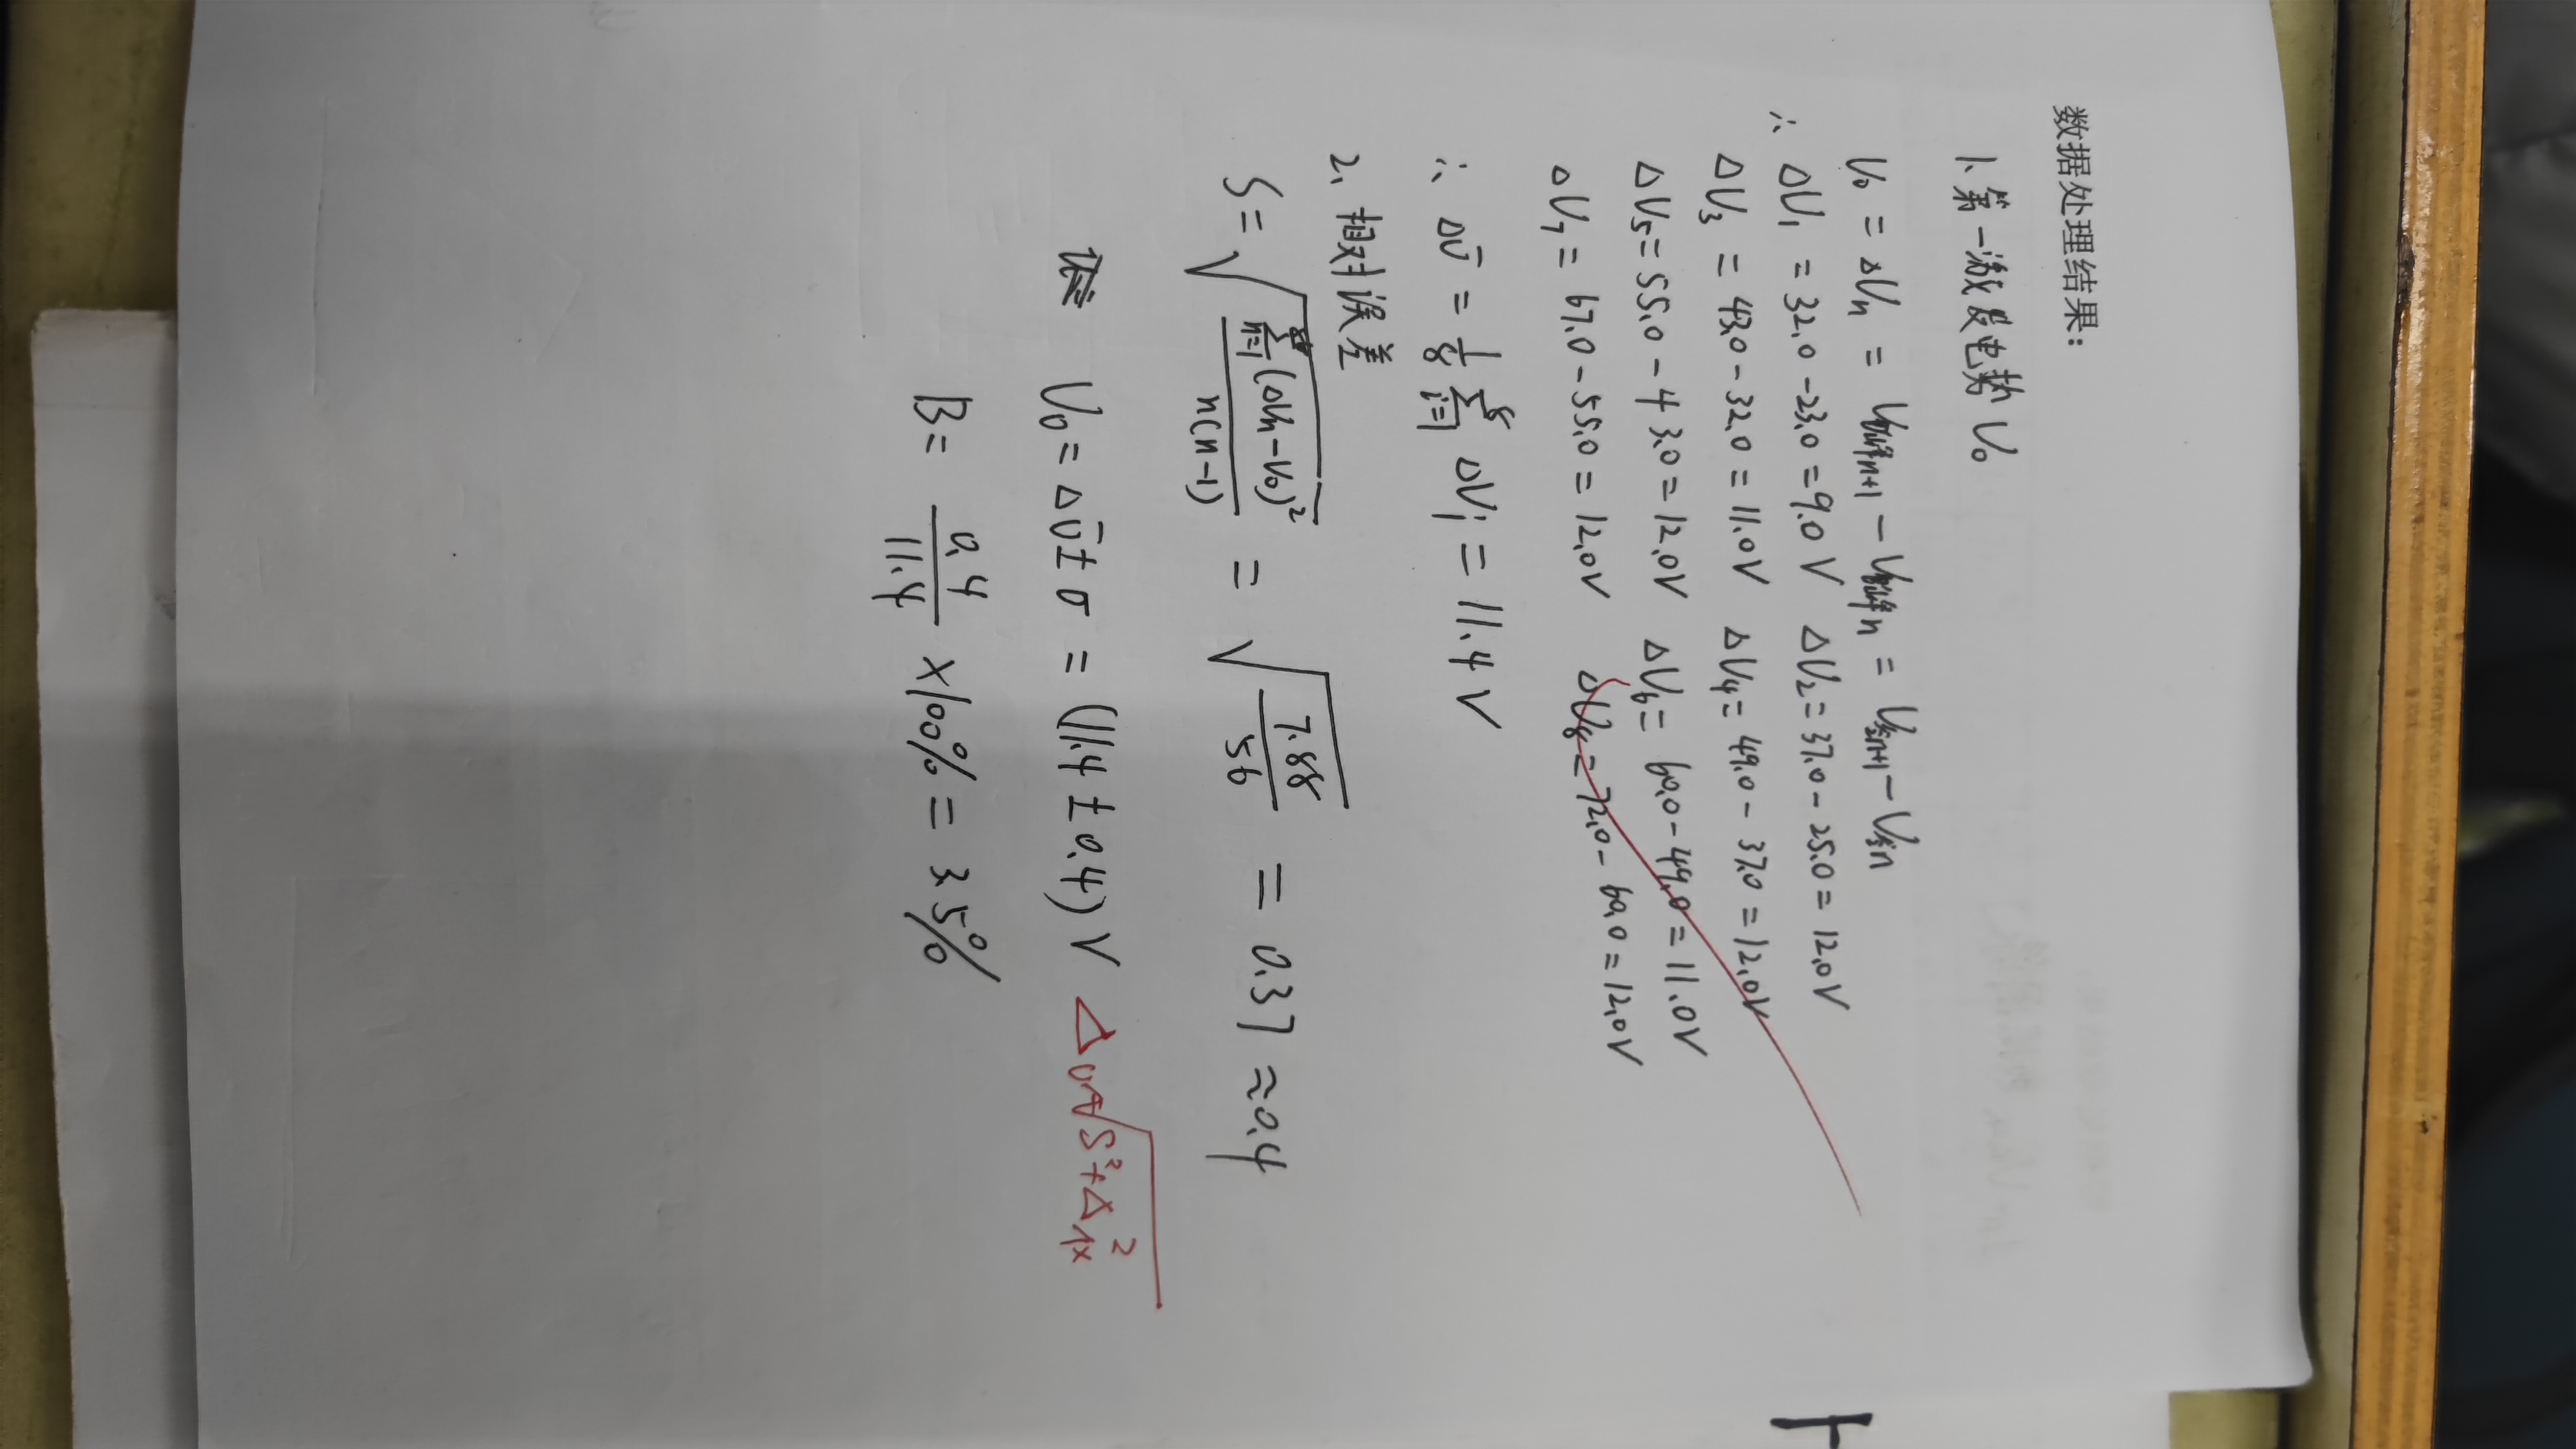 数据处理结果：
1、第一激发电势 U₀
U₀ = ΔUₙ = U峰n+1 − U峰n = U谷n+1 − U谷n
∴ ΔU₁ = 32.0 − 23.0 = 9.0 V ΔU₂ = 37.0 − 25.0 = 12.0 V
ΔU₃ = 43.0 − 32.0 = 11.0 V ΔU₄ = 49.0 − 37.0 = 12.0 V
ΔU₅ = 55.0 − 43.0 = 12.0 V ΔU₆ = 60.0 − 49.0 = 11.0 V
ΔU₇ = 67.0 − 55.0 = 12.0 V ΔU₈ = 72.0 − 60.0 = 12.0 V
∴ ΔŪ = 1/8 Σ_{i=1}^{8} ΔUᵢ = 11.4 V
2、相对误差
S = √(Σ_{n=1}(ΔUₙ − U₀)² / n(n−1)) = √(7.88/56) = 0.37 ≈ 0.4
U₀ = ΔŪ ± σ = (11.4 ± 0.4) V
B = 0.4/11.4 × 100% = 3.5%